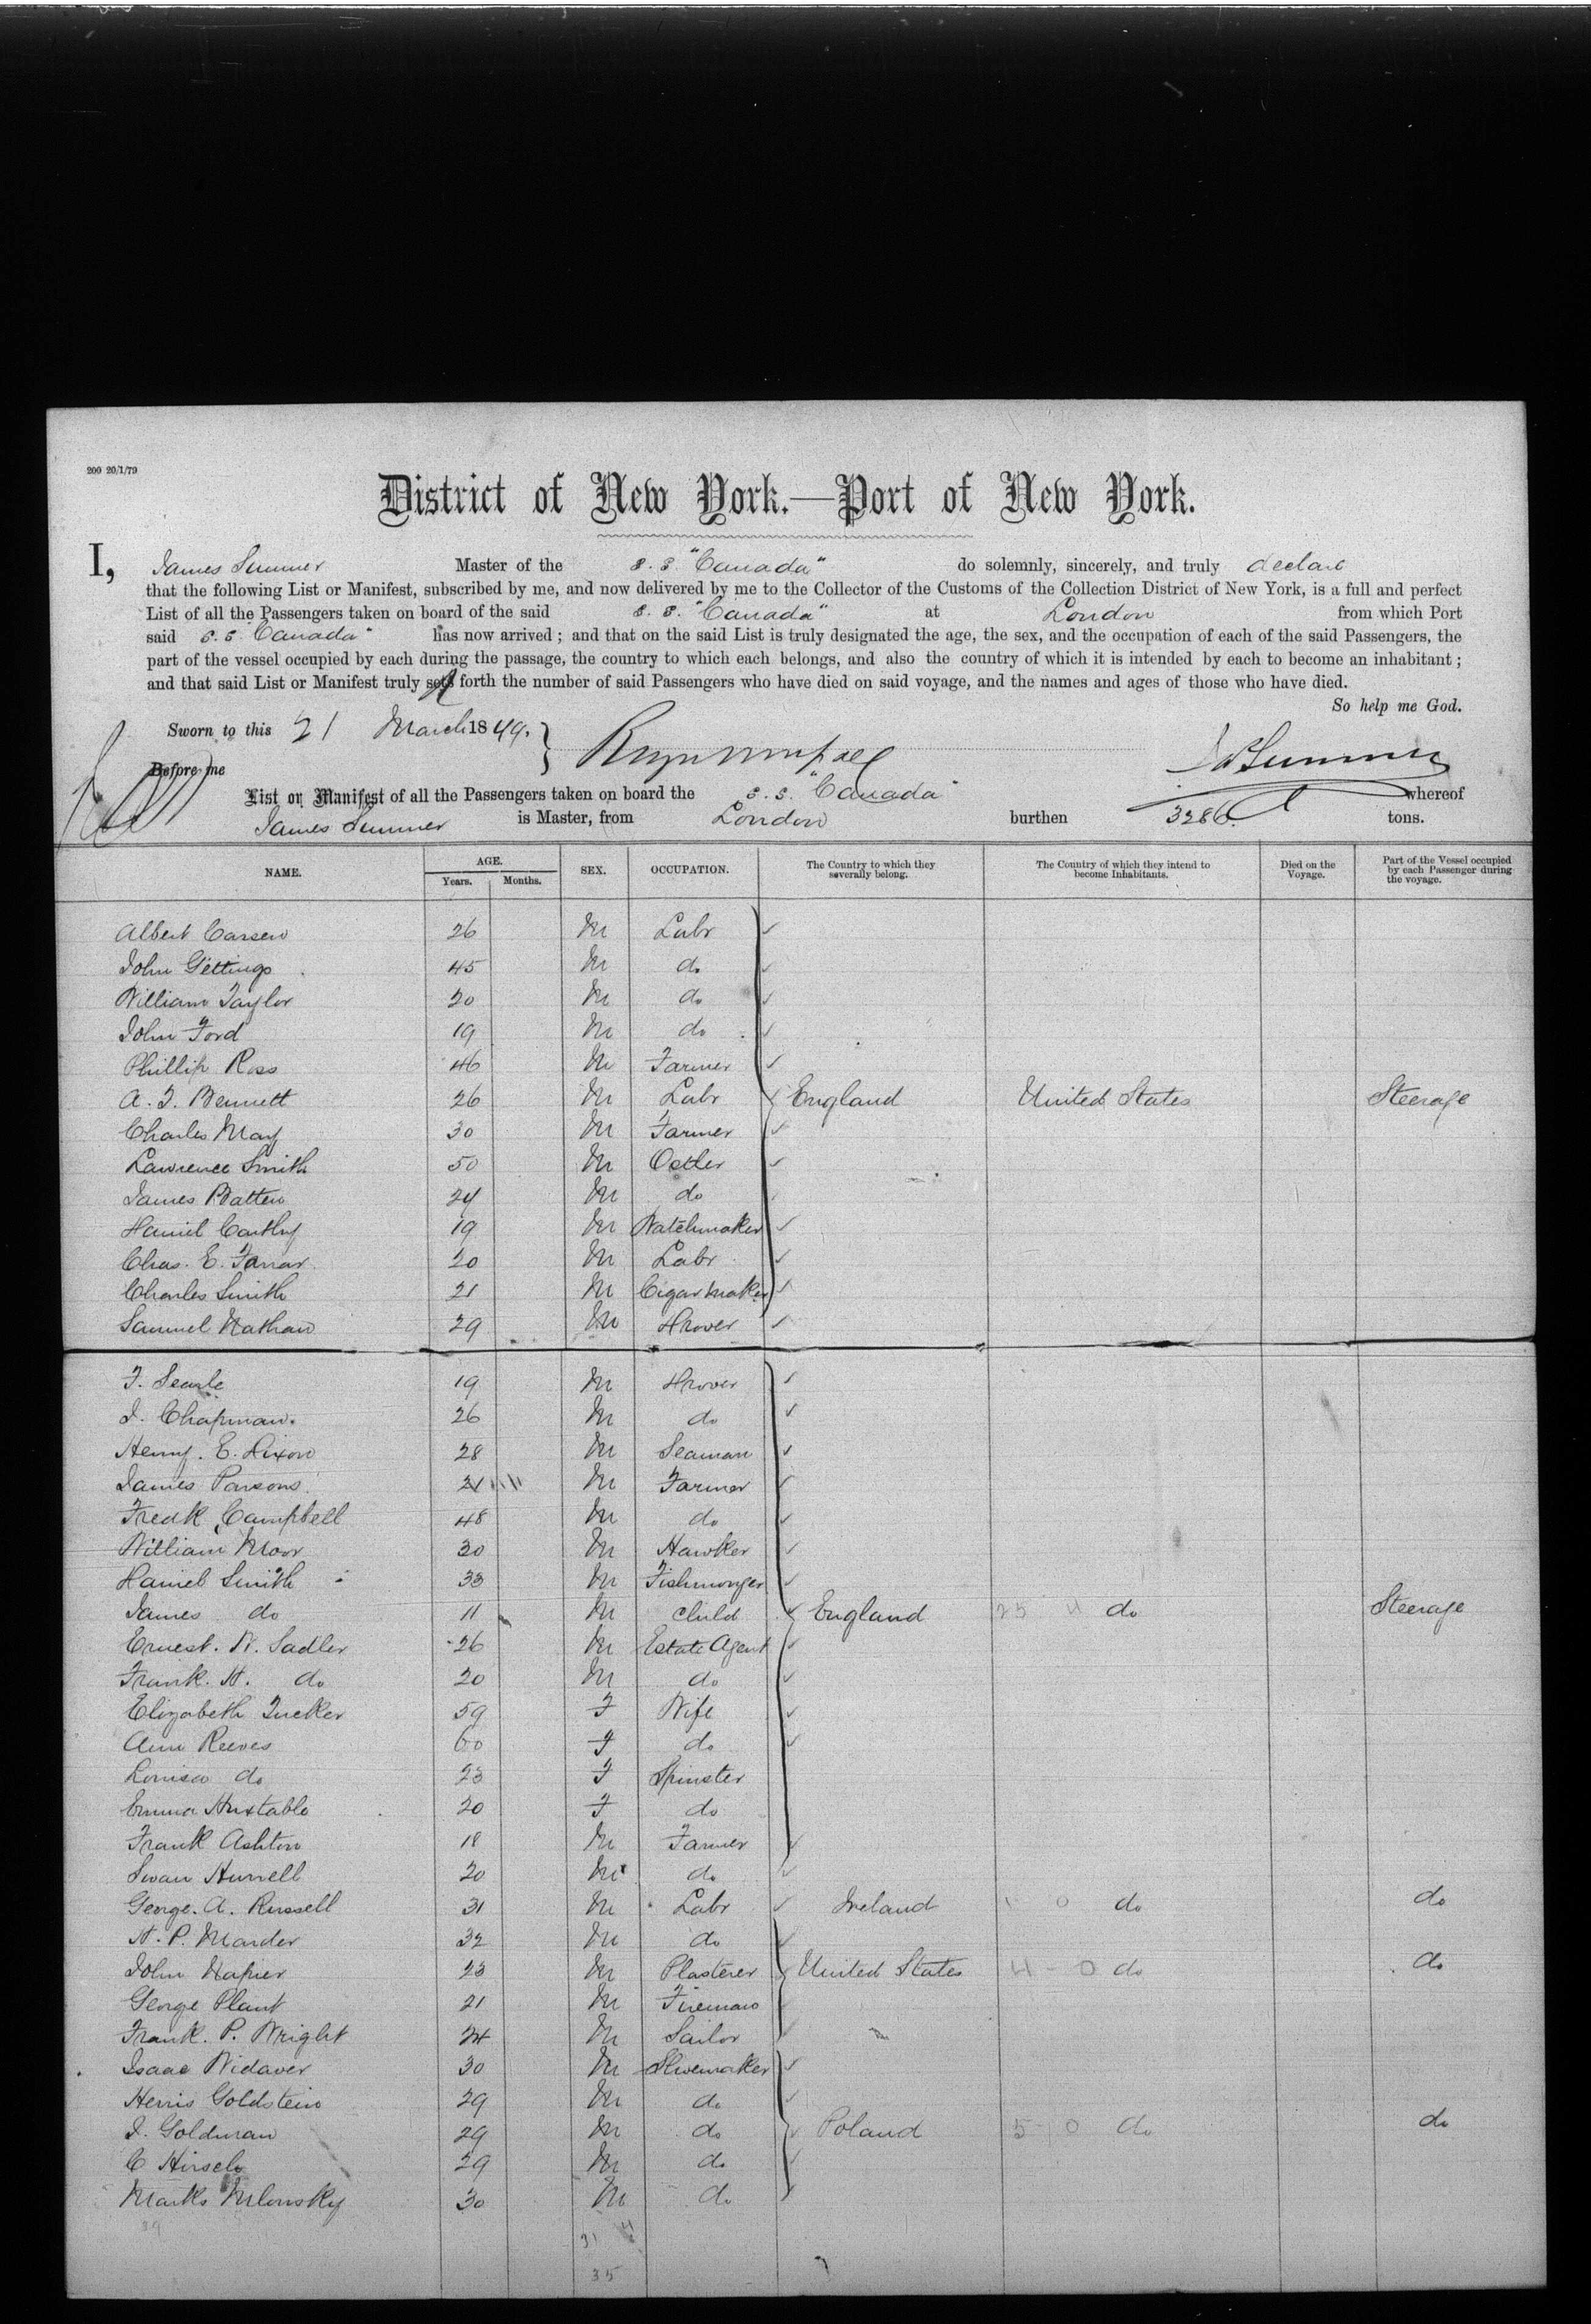 200 20/1/79
District of New York.—Port of New York.
I, James Sumner Master of the S. S. "Canada" do solemnly, sincerely, and truly declare
that the following List or Manifest, subscribed by me, and now delivered by me to the Collector of the Customs of the Collection District of New York, is a full and perfect
List of all the Passengers taken on board of the said S. S. "Canada" at London from which Port
said S. S. "Canada" has now arrived; and that on the said List is truly designated the age, the sex, and the occupation of each of the said Passengers, the
part of the vessel occupied by each during the passage, the country to which each belongs, and also the country of which it is intended by each to become an inhabitant;
and that said List or Manifest truly sets forth the number of said Passengers who have died on said voyage, and the names and ages of those who have died.
So help me God.
Sworn to this 21 March 18
Before me
List or Manifest of all the Passengers taken on board the S. S. "Canada" whereof
James Sumner is Master, from London burthen 3286 tons.
NAME. AGE. Years. Months. SEX. OCCUPATION. The Country to which they severally belong. The Country of which they intend to become Inhabitants. Died on the Voyage. Part of the Vessel occupied by each Passenger during the voyage.
Albert Carsen 26 M Labr
John Gittings 45 M do
William Taylor 20 M do
John Ford 19 M do
Phillip Ross 46 M Farmer
A. J. Bennett 26 M Labr England United States Steerage
Charles May 30 M Farmer
Lawrence Smith 50 M Ostler
James Batten 24 M do
Daniel Carthy 19 M Watchmaker
Chas. E. Farrar 20 M Labr
Charles Smith 21 M Cigar maker
Samuel Nathan 29 M Drover
F. Searle 19 M Drover
J. Chapman. 26 M do
Henry. E. Dixon 28 M Seaman
James Parsons 21 M Farmer
Fredk Campbell 48 M do
William Moor 30 M Hawker
Daniel Smith 33 M Fishmonger
James do 11 M child England 25 4 do Steerage
Ernest. W. Sadler 26 M Estate Agent
Frank. H. do 20 M do
Elizabeth Tucker 59 F Wife
Ann Reeves 60 F do
Louisa do 23 F Spinster
Emma Huxtable 20 F do
Frank Ashton 18 M Farmer
Swan Hurrell 20 M do
George. A. Russell 31 M Labr Ireland 1 0 do do
H. P. Marder 32 M do
John Napier 23 M Plasterer United States 4 - 0 do do
George Plant 21 M Fireman
Frank. P. Wright 24 M Sailor
Isaac Widaver 30 M Shoemaker
Herris Goldstein 29 M do
J. Goldman 29 M do Poland 5 - 0 do do
C Hirsch 29 M do
Marks Mlonsky 30 M do
39
31 4
35